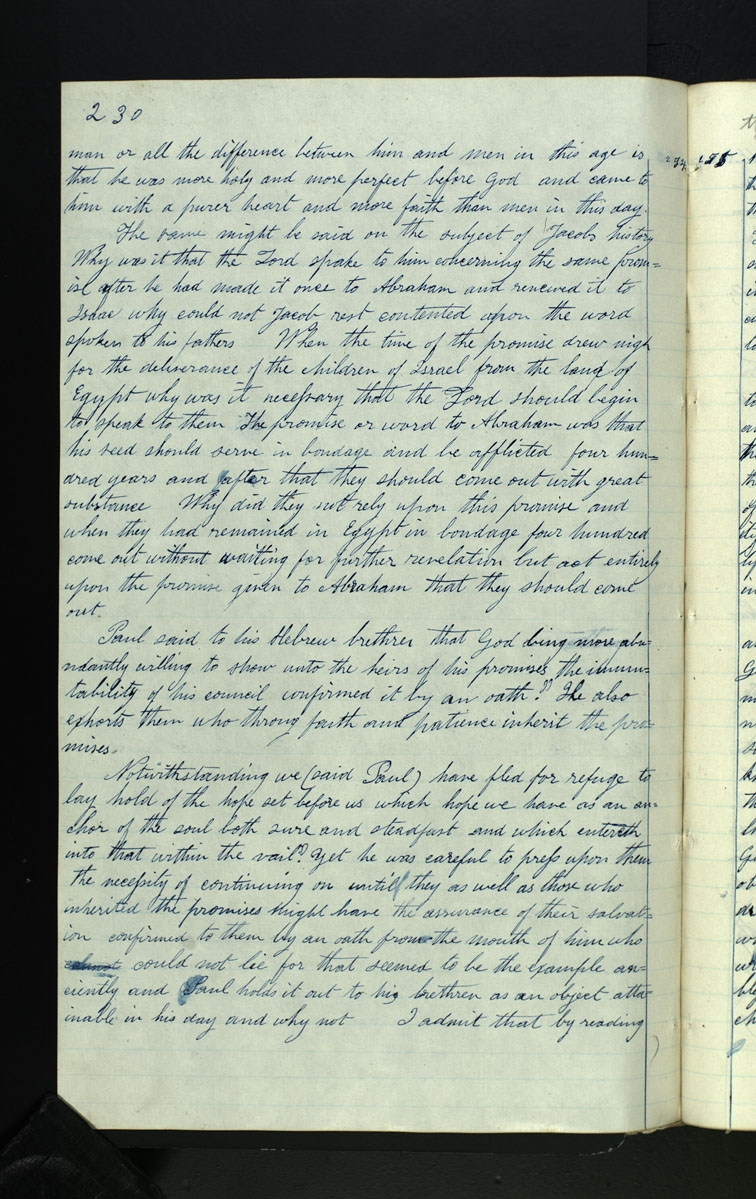 230
man or all the difference between him and men in this age is
that he was more holy and more perfect before God and came to
him with a purer heart and more faith than men in this day.
The same might be said on the subject of Jacobs history
Why was it that the Lord spake to him concerning the same prom=
ise after he had made it once to Abraham and renewed it to
Isaac why could not Jacob rest contented upon the word
spoken to his fathers When the time of the promise drew nigh
for the deliverance of the children of Israel from the land of
Egypt why was it necessary that the Lord should begin
to speak to them The promise or word to Abraham was that
his seed should serve in bondage and be afflicted four hun=
dred years and after that they should come out with great
substance Why did they not rely upon this promise and
when they had remained in Egypt in bondage four hundred
come out without waiting for further revelation but act entirely
upon the promise given to Abraham that they should come
out.
Paul said to his Hebrew brethren that God being more abu=
ndantly willing to show unto the heirs of his promises the immu=
tability of his council confirmed it by an oath" He also
exhorts them who throug faith and patience inherit the pro=
mises.
Notwithstanding we (said Paul) have fled for refuge to
lay hold of the hope set before us which hope we have as an an=
chor of the soul both sure and steadfast and which entereth
into that within the vail" Yet he was careful to press upon them
the necessity of continuing on until they as well as those who
inherited the promises might have the assurance of their salvat=
ion confirmed to them by an oath from the mouth of him who
could not lie for that seemed to be the example an=
ciently and Paul holds it out to his brethren as an object atta=
inable in his day and why not I admit that by reading